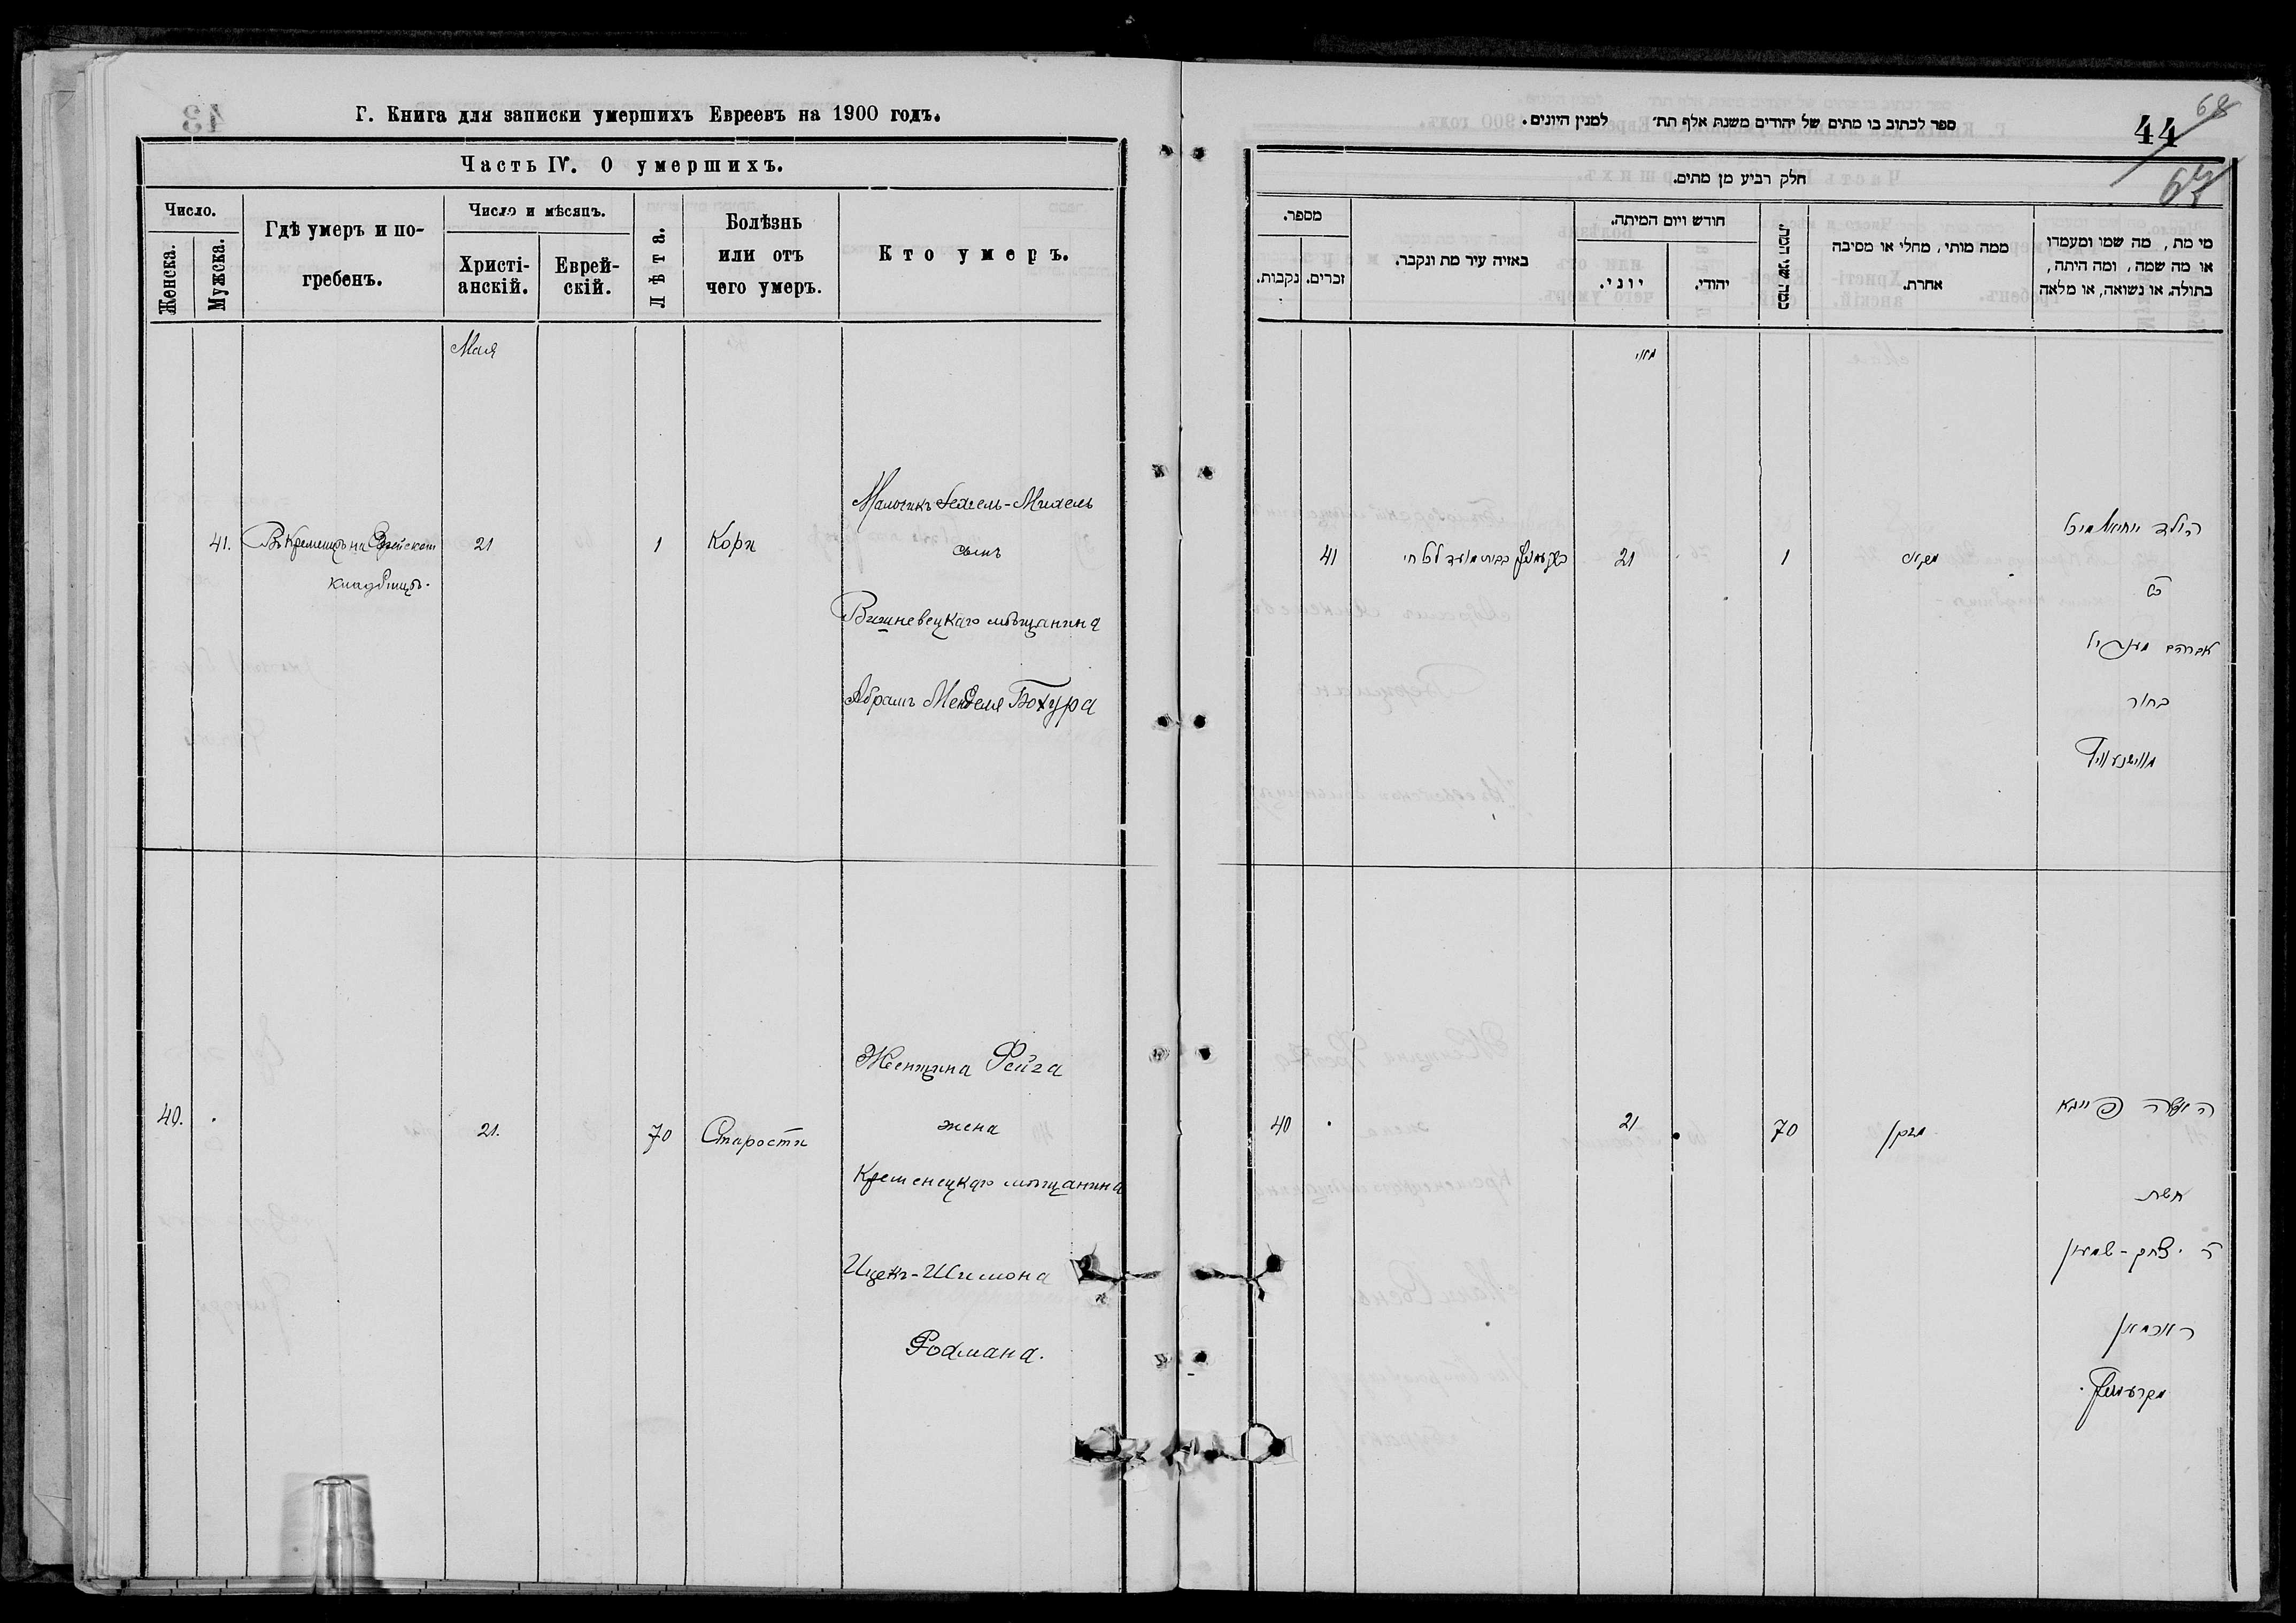 Г. Книга для записки умершихъ Евреевъ на 1900 годъ.
Часть IV. О умершихъ.
Число.
Женска.
Мужска.
Гдѣ умеръ и по-
гребенъ.
Число и мѣсяцъ.
Христі-
анскій.
Еврей-
скій.
Лѣта.
Болѣзнь
или отъ
чего умеръ.
Кто умеръ.
Мая
41.
Въ Кременцѣ на Еврейском
кладбищѣ.
21
1
Кори
Мальчикъ Михель
сынъ
Вишневецкаго мѣщанина
Абрамъ Менделя Бохура
40.
21.
70
Старости
Женщина Фейга
жена
Кременецкаго мѣщанина
Ицекъ-Шимона
Родмана.
44
68
ספר לכתוב בו מתים של יהודים משנת אלף תת׳ למנין היונים.
חלק רביעי מן מתים.
מספר.
נקבות.
זכרים.
באיזה עיר מת ונקבר.
חודש ויום המיתה.
יוני.
יהודי.
כמה שני המת.
ממה מותי, מחלי או מסיבה
אחרת.
מי מת, מה שמו ומעמדו
או מה שמה, ומה היתה,
בתולה, או נשואה, או מלאה
מאי
41
21
1
הילד יחיאל מיכל
בן
אברהם מענדיל
בחור
מווישנעוויץ
40
21
70
מזקן
האשה פייגא
אשת
ר׳ יצחק-שמעון
ראדמאן
מקרעמניץ.